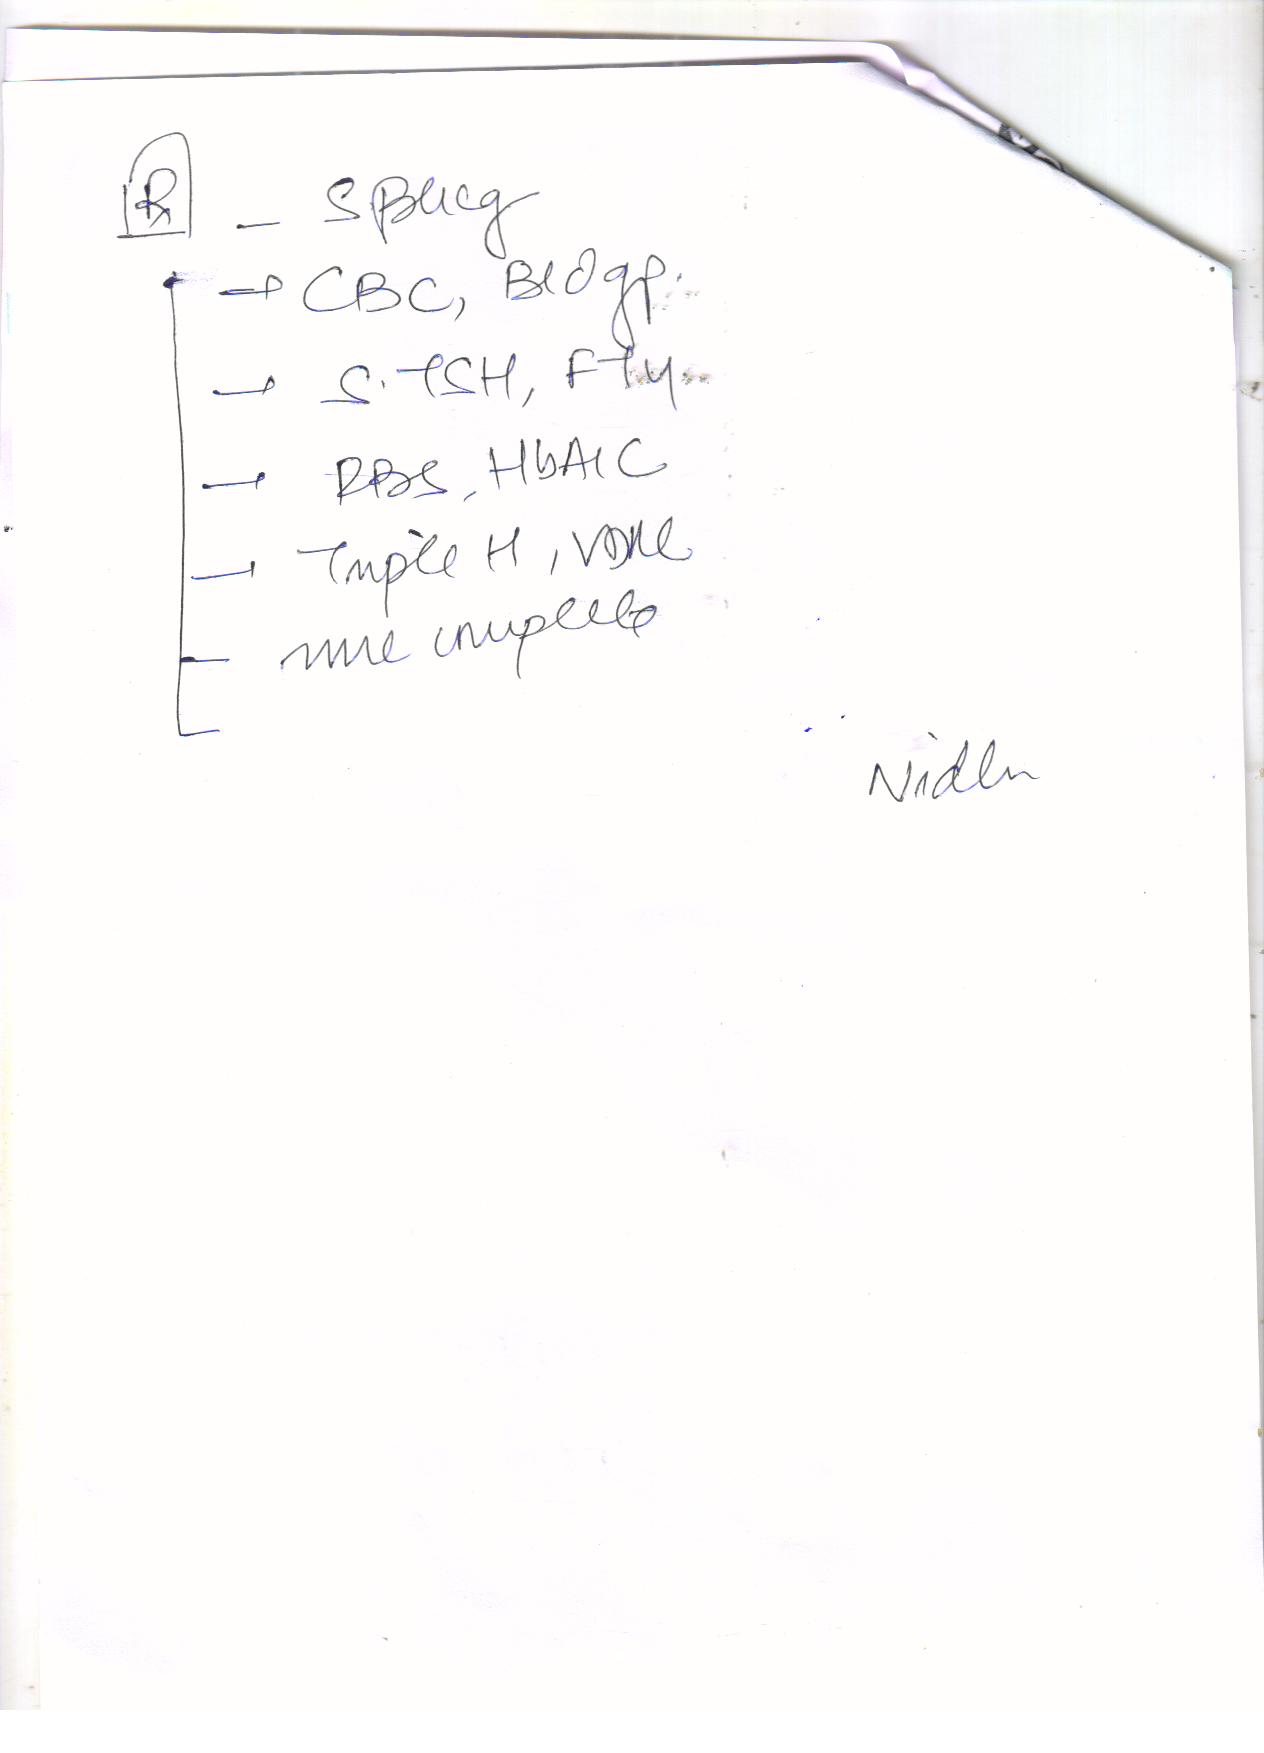 Rx - S βhcg
→ CBC, Bld gp.
→ S. TSH, FT4
→ RBS, HbA1C
→ Triple H, VDRL
- urine complete
Nidhi